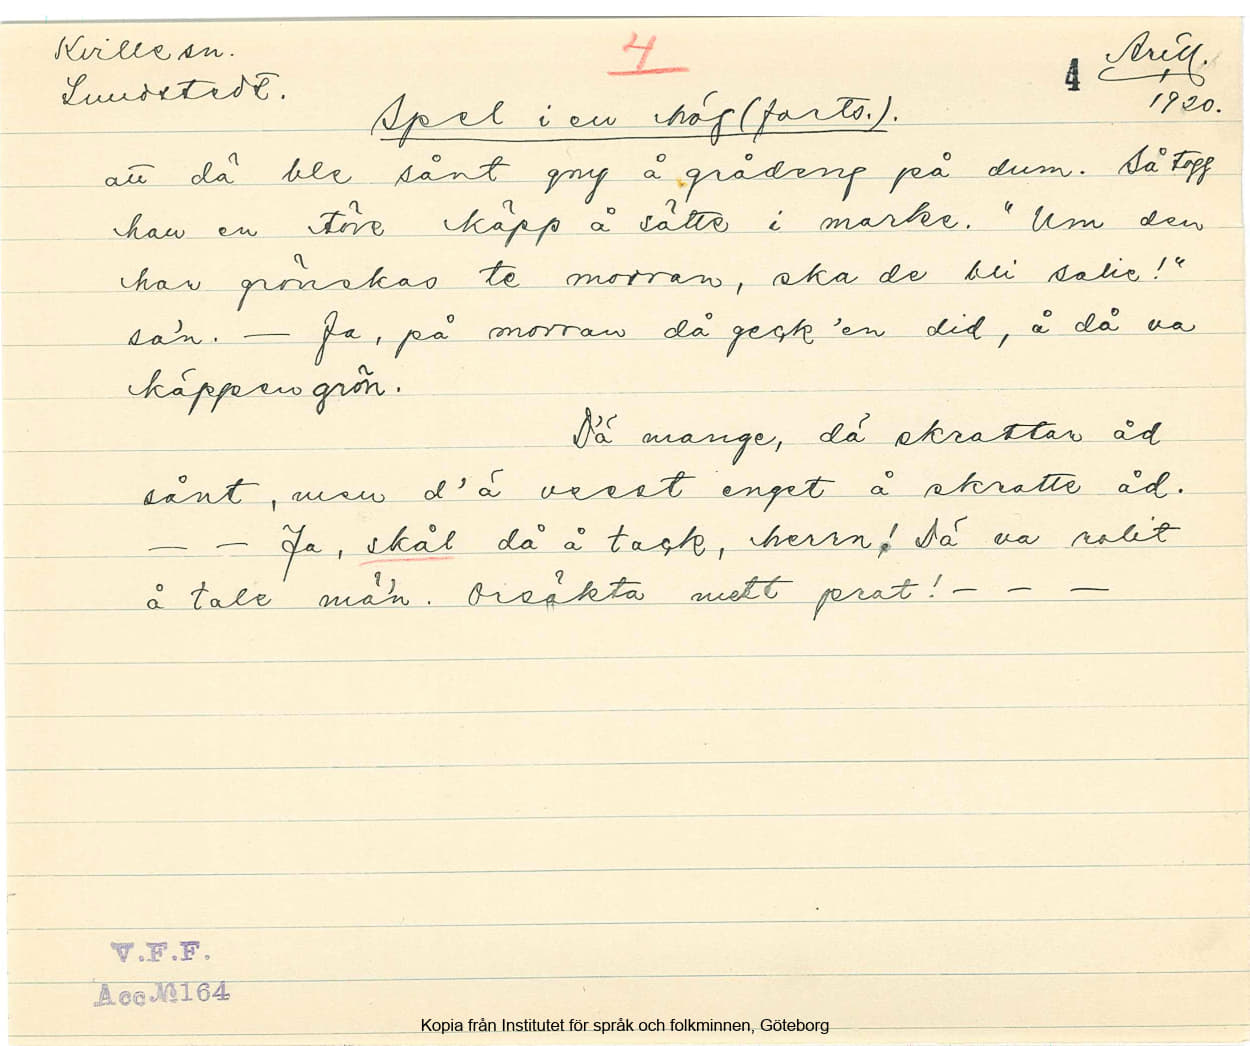 Kville sn.
4
4
Arill.
Lundstedt.
1920.
Spel i en hög (forts.).
att då ble sånt gny å grådeng på dum. Så togg
han en töre käpp å sätte i marke. "Um den
har grönskas te morran, ska de bli salie!"
sa'n. — Ja, på morran då geck 'en did, å då va
käppen grön.
D'ä mange, dä skrattar åd
sånt, men d'ä veest enget å skratte åd.
— — Ja, skål då å tack, herrn! Dä va rolit
å tale mä'n. Orsäkta mett prat! — — —
V.F.F.
Acc № 164
Kopia från Institutet för språk och folkminnen, Göteborg